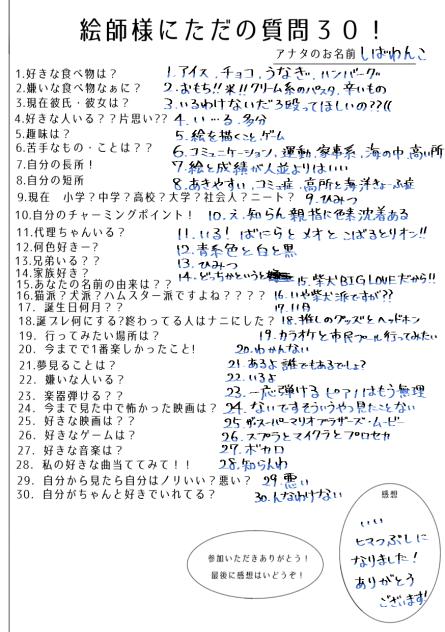 絵師様にただの質問30！
アナタのお名前 しばわんこ
1.好きな食べ物は？ 1.アイス、チョコ、うなぎ、ハンバーグ
2.嫌いな食べ物なぁに？ 2.おもち!!米!!クリーム系のパスタ、辛いもの
3.現在彼氏・彼女は？ 3.いるわけないだろ殴ってほしいの??((
4.好きな人いる？？片思い?? 4.い…る、多分
5.趣味は？ 5.絵を描くこと、ゲーム
6.苦手なもの・ことは？？ 6.コミュニケーション、運動、家事系、海の中、高い所
7.自分の長所！ 7.絵と成績が人並よりはいい
8.自分の短所 8.あきやすい、コミュ症、高所と海洋きょふ症
9.現在 小学？中学？高校？大学？社会人？ニート？ 9.ひみつ
10.自分のチャーミングポイント！ 10.え、知らん 親指に色素沈着ある
11.代理ちゃんいる？ 11.いる！ばにらとメオとこばるとリオン!!
12.何色好きー？ 12.青系色と白と黒
13.兄弟いる？？ 13.ひみつ
14.家族好き？ 14.どっちかというと
15.あなたの名前の由来は？？ 15.柴犬BIGLOVEだから!!
16.猫派？犬派？ハムスター派ですよね？？？？ 16.いや柴犬派ですが??
17. 誕生日何月？？ 17.11月
18.誕プレ何にする?終わってる人はナニにした？ 18.推しのグッズとヘッドホン
19. 行ってみたい場所は？ 19.カラオケと市民プール行ってみたい
20. 今までで1番楽しかったこと! 20.わかんない
21.夢見ることは？ 21.あるよ 誰でもあるでしょ？
22. 嫌いな人いる？ 22.いるよ
23. 楽器弾ける？？ 23.一応弾ける ピアノはもう無理
24. 今まで見た中で怖かった映画は？ 24.ないですそういうやつ見たことない
25. 好きな映画は？？ 25.ザ・スーパーマリオブラザーズ・ムービー
26. 好きなゲームは？ 26.スプラとマイクラとプロセカ
27. 好きな音楽は？ 27.ボカロ
28. 私の好きな曲当ててみて！！ 28.知らんわ
29. 自分から見たら自分はノリいい？悪い？ 29.悪い
30. 自分がちゃんと好きでいれてる？ 30.んなわけない
参加いただきありがとう！
最後に感想はいどうぞ！
感想
いい
ヒマつぶしに
なりました！
ありがとう
ございます!